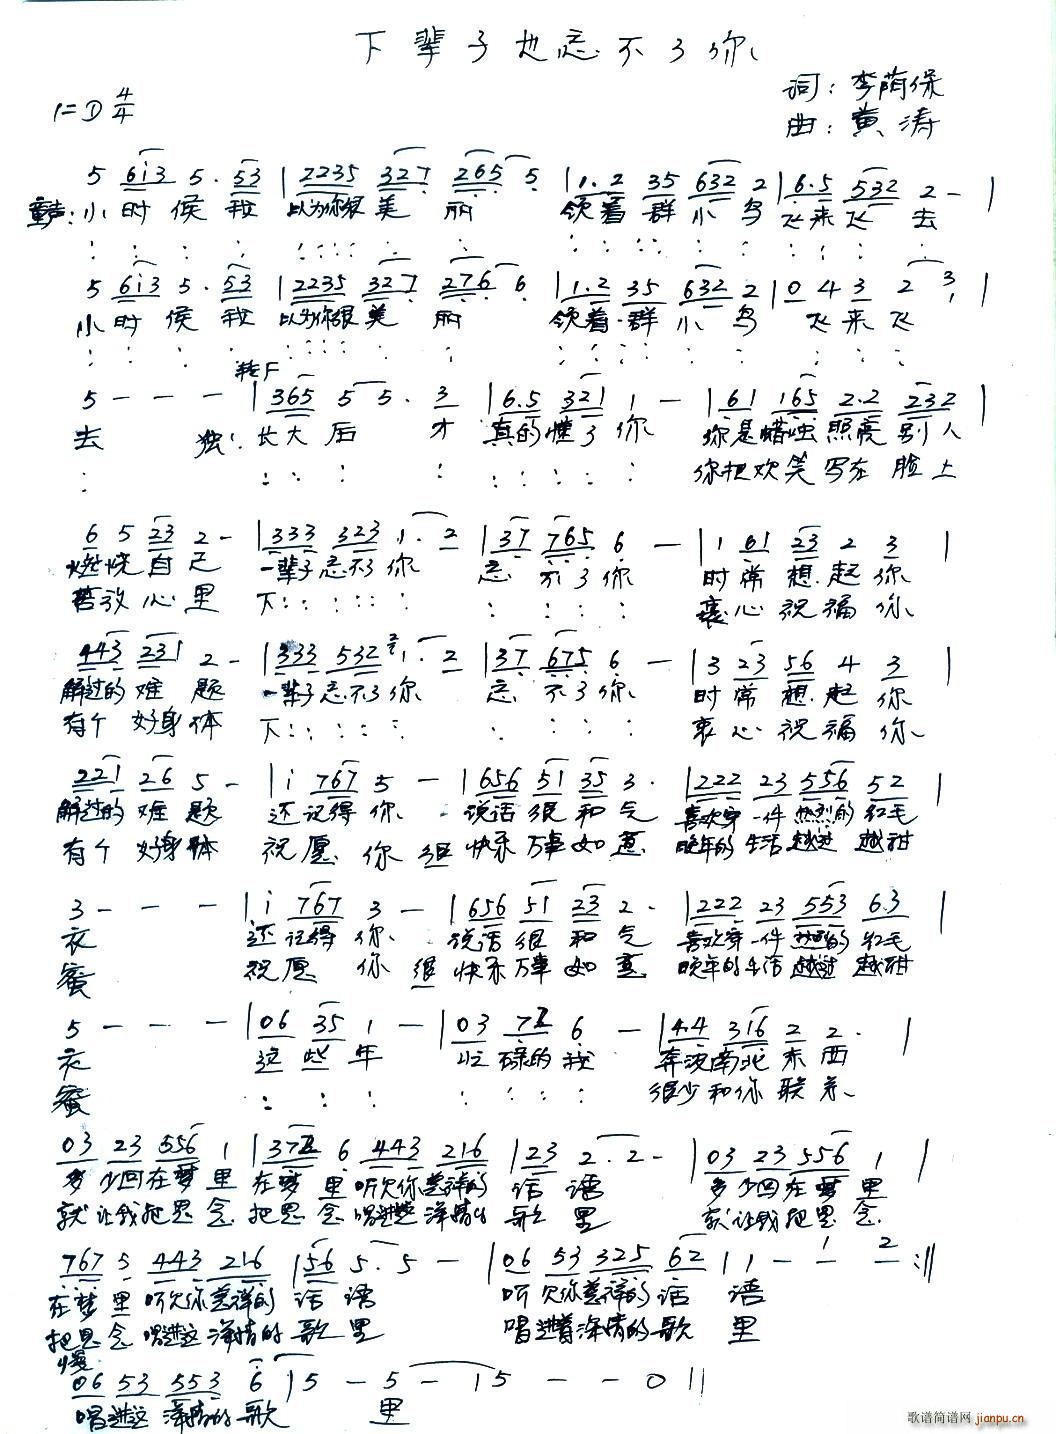 下辈子也忘不了你
词：李荫保
1=D 4/4
曲：黄涛
5 6i3 5. 53 | 2235 327 265 5 | 1.2 35 632 2 | 6.5 532 2 - |
童声：小时候我 以为你很美丽 领着群小鸟飞来飞去
5 6i3 5. 53 | 2235 327 276 6 | 1.2 35 632 2 | 0 4 3 2 3 |
小时候我 以为你很美丽 领着群小鸟 飞来飞
转F
5 - - - | 365 5 5. 3 | 6.5 321 1 - | 61 165 2.2 232 |
去 独：长大后才 真的懂了你 你是蜡烛照亮别人
你把欢笑写在脸上
6 5 23 2 - | 333 323 1. 2 | 37 765 6 - | 1 61 23 2 3 |
燃烧自己 一辈子忘不了你 忘不了你 时常想起你
苦放心里 下 衷心祝福你
443 231 2 - | 333 532 1. 2 | 37 675 6 - | 3 23 56 4 3 |
解过的难题 一辈子忘不了你 忘不了你 时常想起你
有个好身体 下 衷心祝福你
221 26 5 - | i 767 5 - | 656 51 35 3. | 222 23 556 52 |
解过的难题 还记得你 说话很和气 喜欢穿一件热烈的红毛
有个好身体 祝愿你很快乐万事如意 晚年的生活越过越甜
3 - - - | i 767 3 - | 656 51 23 2. | 222 23 553 6.3 |
衣 还记得你 说话很和气 喜欢穿一件热烈的红毛
蜜 祝愿你很快乐万事如意 晚年的生活越过越甜
5 - - - | 06 35 1 - | 03 72 6 - | 4.4 316 2 2. |
衣 这些年 忙碌的我 奔波南北东西
蜜 很少和你联系
03 23 556 1 | 372 6 443 216 | 23 2. 2 - | 03 23 556 1 |
多少回在梦里在梦里听欠你慈祥的话语 多少回在梦里
就让我把思念把思念唱进这深情的歌里 就让我把思念
767 5 443 216 | 56 5. 5 - | 06 53 325 62 | 1 - 1 2 :||
在梦里听欠你慈祥的话语 听欠你慈祥的话语
把思念唱进这深情的歌里 唱进着深情的歌里
慢
06 53 553 6 | 5 - 5 - | 5 - - 0 ||
唱进这深情的歌里
歌谱简谱网 jianpu.cn